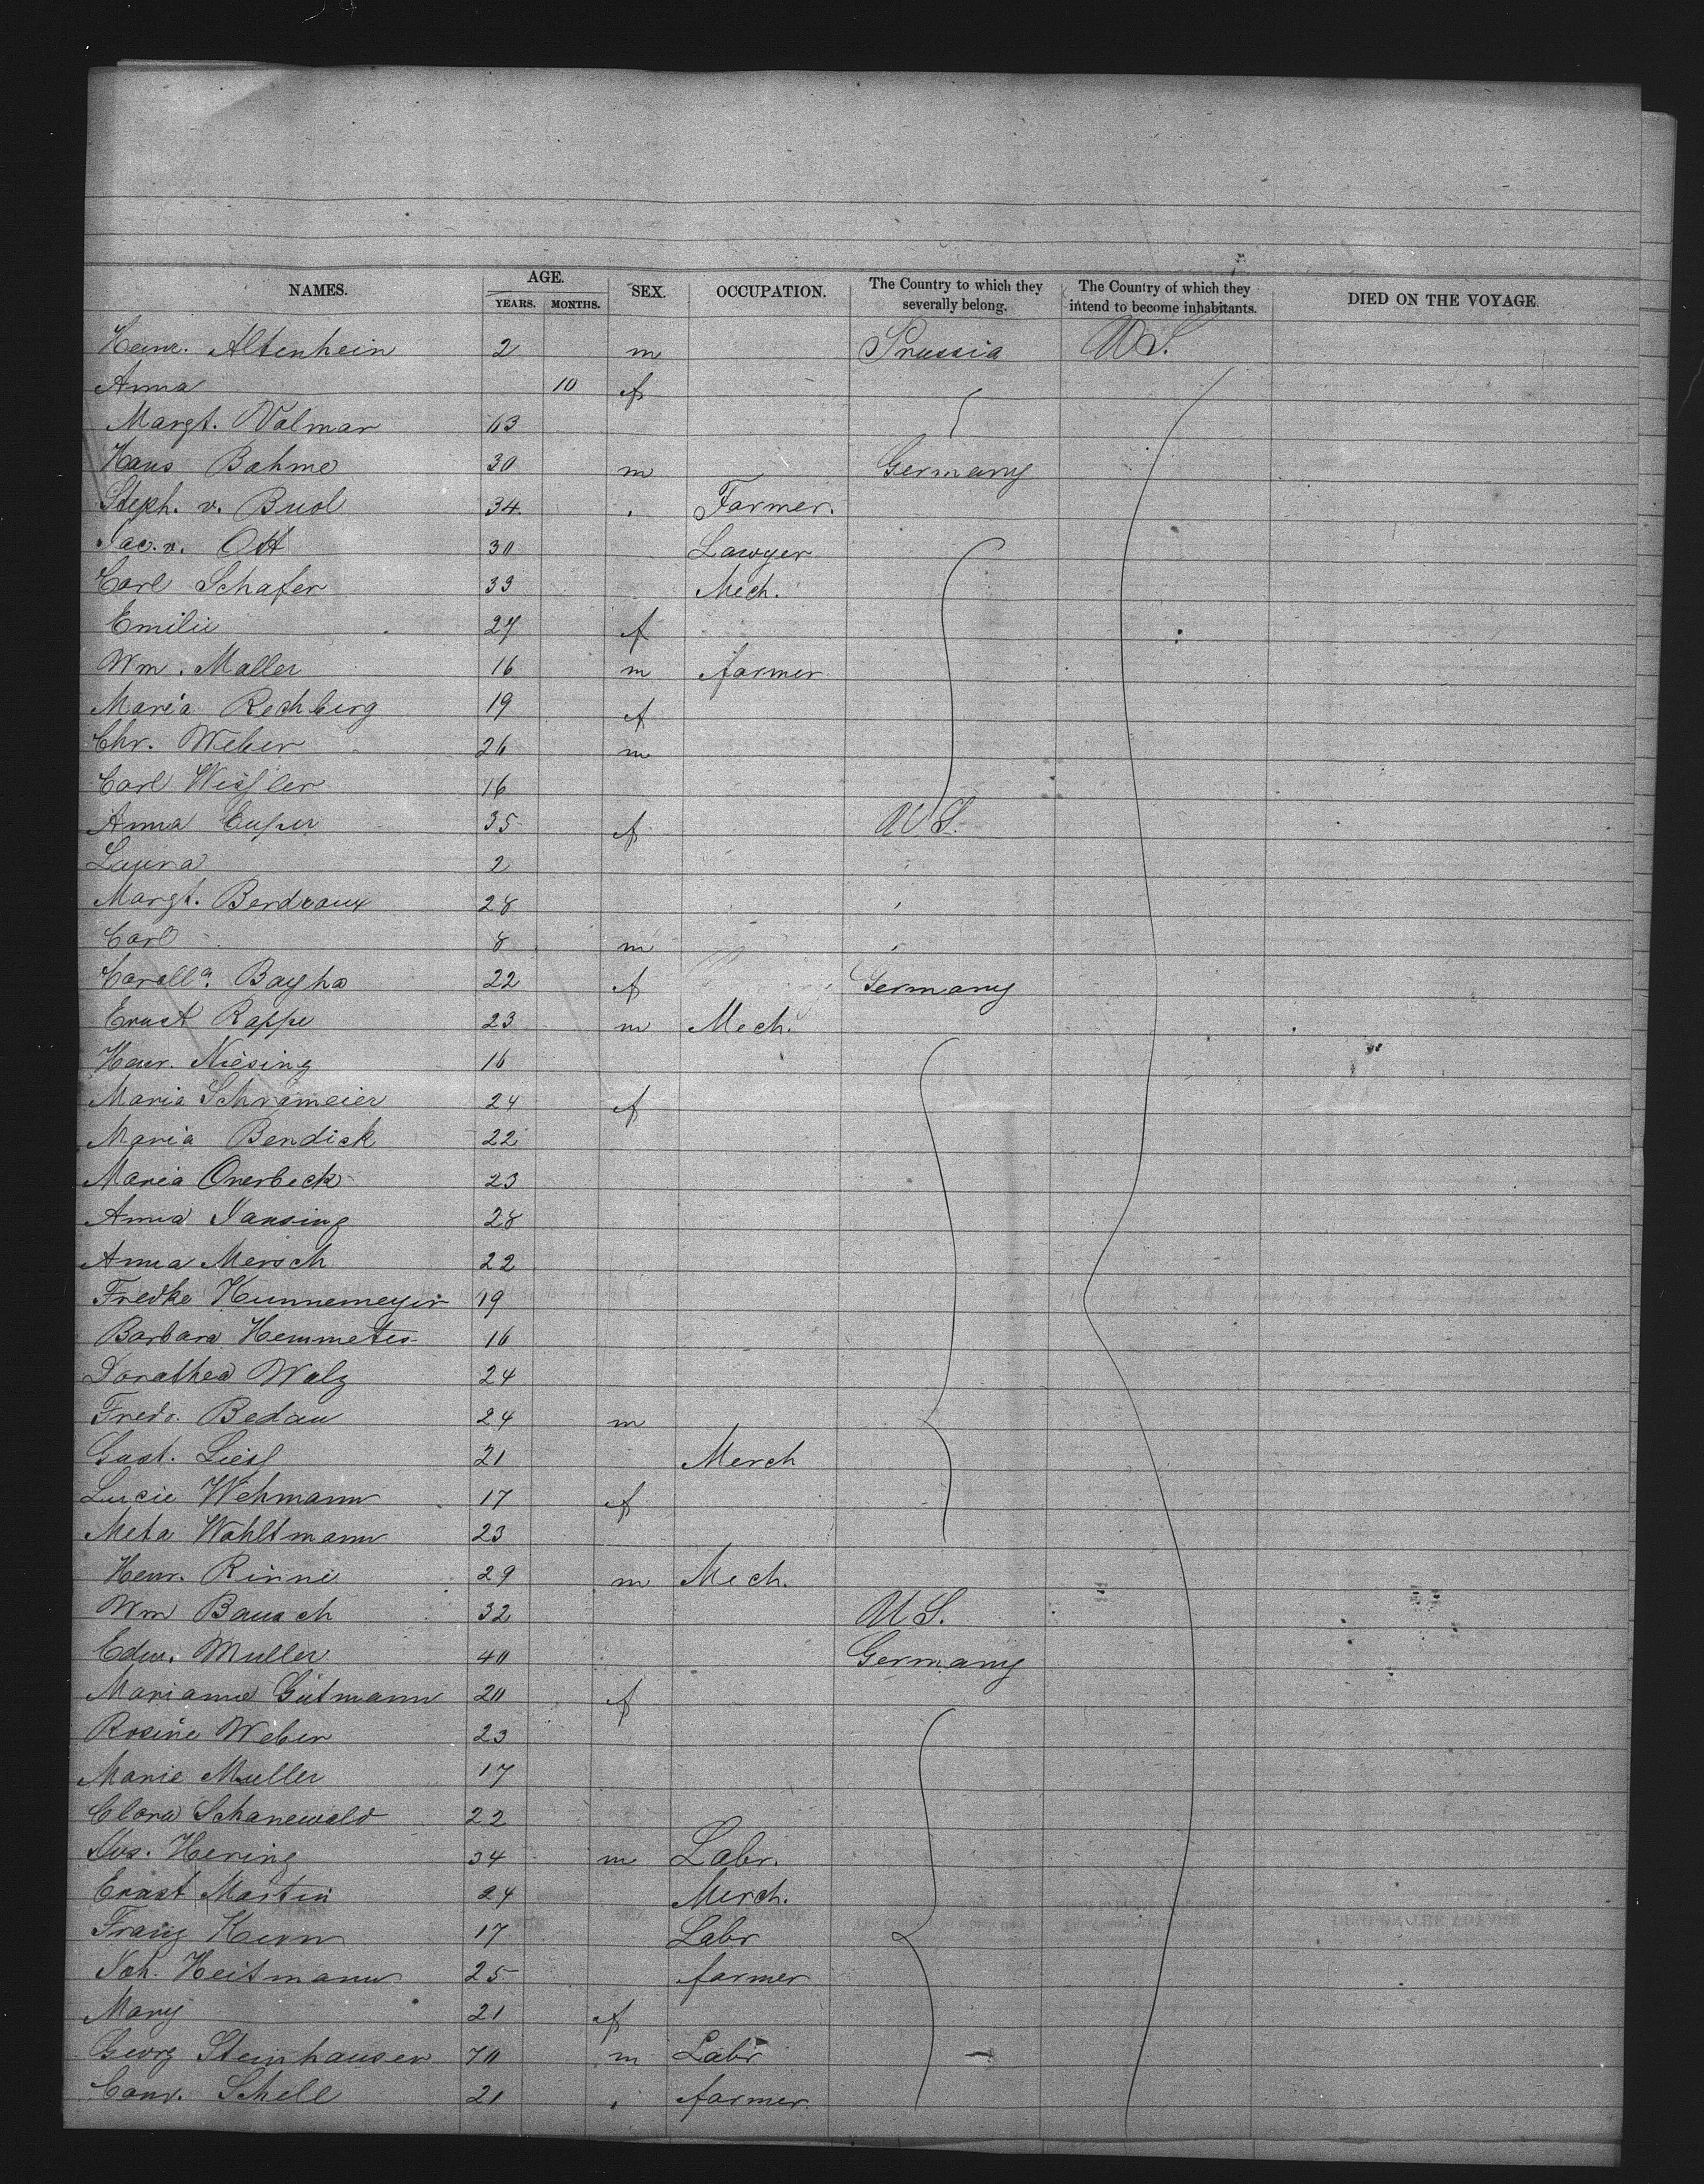 NAMES. AGE. YEARS. MONTHS. SEX. OCCUPATION. The Country to which they severally belong. The Country of which they intend to become inhabitants. DIED ON THE VOYAGE.
Heinr. Altenhein 2 m Prussia U S.
Anna 10 f
Margt. Volmar 63
Hans Bohme 30 m Germany
Steph. v. Buol 34 Farmer.
Jac. v. Ott 30 Lawyer
Carl Schafer 33 Mech.
Emilie 27 f
Wm. Moller 16 m farmer
Maria Rechberg 19 f
Chr. Weber 26 m
Carl 16
Anna 35 f U S.
Laura 2
Margt. Berdraux 28
Carl 8 m
22 f Germany
Ernst Rappe 23 m Mech.
Henr. Niesing 16
Maria Schrameier 24 f
Maria Bendick 22
Maria Overbeck 23
Anna Jansing 28
Anna Mersch 22
Fredke Hunnemeyer 19
Barbara 16
Dorothea Walz 24
Fredr. Bedau 24 m
Gust. Liess 21 Merch
Lucie Wehmann 17 f
Meta Wohltmann 23
Henr. Rinne 29 m Mech.
Wm Bausch 32 U S.
Edw. Muller 40 Germany
Marianne Gutmann 20 f
Rosine Weber 23
Marie Muller 17
Clara Schanewald 22
Jos. Hering 34 m Labr.
Ernst Martin 24 Merch.
Franz Kern 17 Labr
Joh. Heitmann 25 farmer
Mary 21 f
Georg Steinhauser 70 m Labr
Conr. Schell 21 farmer.